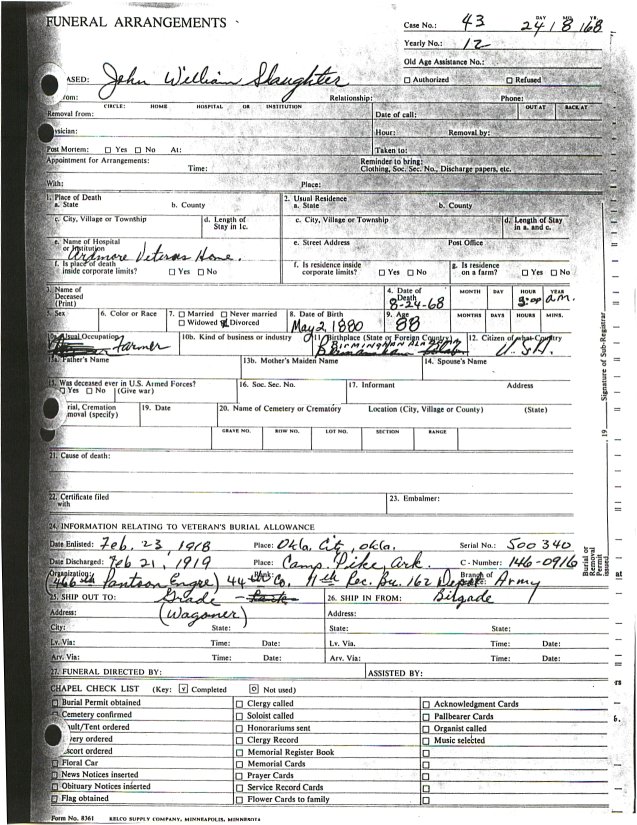 FUNERAL ARRANGEMENTS
Case No.: 43 DAY MO. YR. 24 | 8 | 68
Yearly No.: 12
Old Age Assistance No.:
ASED: John William Slaughter □ Authorized □ Refused
Relationship: Phone:
CIRCLE: HOME HOSPITAL OR INSTITUTION OUT AT BACK AT
Removal from: Date of call:
ysician: Hour: Removal by:
Post Mortem: □ Yes □ No At: Taken to:
Appointment for Arrangements: Reminder to bring:
Time: Clothing, Soc. Sec. No., Discharge papers, etc.
With: Place:
1. Place of Death 2. Usual Residence
a. State b. County a. State b. County
c. City, Village or Township d. Length of Stay in 1c. c. City, Village or Township d. Length of Stay in a. and c.
e. Name of Hospital or Institution e. Street Address Post Office
Ardmore Veterans Home.
f. Is place of death inside corporate limits? □ Yes □ No f. Is residence inside corporate limits? □ Yes □ No g. Is residence on a farm? □ Yes □ No
3. Name of Deceased (Print) 4. Date of Death MONTH DAY HOUR YEAR
8-24-68 3:00 a.m.
5. Sex 6. Color or Race 7. □ Married □ Never married 8. Date of Birth 9. Age MONTHS DAYS HOURS MINS.
□ Widowed □ Divorced May 2, 1880 88
Usual Occupation 10b. Kind of business or industry 11. Birthplace (State or Foreign Country) 12. Citizen of what Country
Farmer BIRMINGHAM ALABAMA U.S.A.
13a. Father's Name 13b. Mother's Maiden Name 14. Spouse's Name
15. Was deceased ever in U.S. Armed Forces? 16. Soc. Sec. No. 17. Informant Address
□ Yes □ No (Give war)
rial, Cremation 19. Date 20. Name of Cemetery or Crematory Location (City, Village or County) (State)
moval (specify)
GRAVE NO. ROW NO. LOT NO. SECTION RANGE
21. Cause of death:
22. Certificate filed with 23. Embalmer:
24. INFORMATION RELATING TO VETERAN'S BURIAL ALLOWANCE
Date Enlisted: Feb. 23, 1918 Place: Okla. City, Okla. Serial No.: 500340
Date Discharged: Feb 21, 1919 Place: Camp Pike, Ark. C - Number: 146-0916
Organization: 466th Pontoon Engre) 44th Co, 11th Rec. Bn. 162 Depot Branch of Army
25. SHIP OUT TO: Grade - 26. SHIP IN FROM: Brigade
Address: (Wagoner) Address:
City: State: State: State:
Lv. Via: Time: Date: Lv. Via. Time: Date:
Arv. Via: Time: Date: Arv. Via: Time: Date:
27. FUNERAL DIRECTED BY: ASSISTED BY:
CHAPEL CHECK LIST (Key: √ Completed o Not used)
□ Burial Permit obtained □ Clergy called □ Acknowledgment Cards
□ Cemetery confirmed □ Soloist called □ Pallbearer Cards
ult/Tent ordered □ Honorariums sent □ Organist called
ery ordered □ Clergy Record □ Music selected
scort ordered □ Memorial Register Book □
□ Floral Car □ Memorial Cards □
□ News Notices inserted □ Prayer Cards □
□ Obituary Notices inserted □ Service Record Cards □
□ Flag obtained □ Flower Cards to family □
Form No. 8361 KELCO SUPPLY COMPANY, MINNEAPOLIS, MINNESOTA
Signature of Sub-Registrar
19
Burial or Removal Permit issued